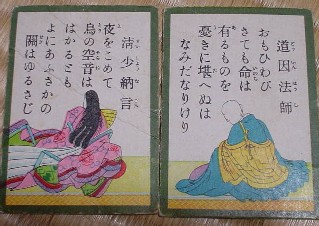 道因法師
おもひわび
さても命は
有るものを
憂きに堪へぬは
なみだなりけり
清少納言
夜をこめて
鳥の空音は
はかるとも
よにあふさかの
關はゆるさじ